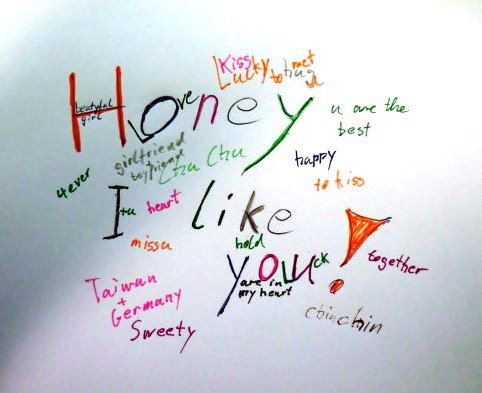 Kiss
Lucky to met u
hug
Honey
beautyful
girl
Love
u are the
best
girlfriend
boyfriend
Chu Chu
happy
to kiss
4ever
I like
heart
miss u
hold
you!
Luck
are in
my heart
together
Taiwan
+
Germany
Sweety
chinchin